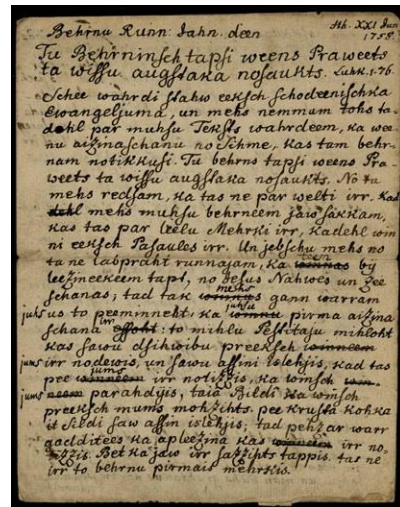 Behrnu Runn. Jahn. deen
Hh. XXI Jun
1758.
Tu Behrninsch tapsi weens Praweets
ta wissu augstaka nosaukts. Luhk. 1.76.
Schee wahrdi stahw eeksch schodeenischka
Ewangeljuma, un mehs nemmum tohs ta-
dehl par muhsu Teksts wahrdeem, ka wee
nu aizinaschanu no Sihme, kas tam behr-
nam notikkusi. Tu behrns tapsi weens Pra-
weets ta wissu augstaka nosaukts. No ta
mehs redsam, ka tas ne par welti irr. Kad
mehs muhsu behrneem jaw sakkam,
kas tas par leelu Mehrki irr, kadehl win
ni eeksch Pasaules irr. Un jebschu mehs no
ta ne labpraht runnajam, ka teem bij
leezineekeem tapt, no Jesus Nahwes un Zee
schanas; tad tak mehs gann warram
juhs us to peeminneht, ka juhsu pirma aizina
schana irr: to mihlu Pestitaju mihloht
kas sawu dsihwibu preeksch
jums irr nodewis, un sawu assini islehjis, kad tas
pee jums irr notizzis, ka winsch
jums parahdijis, taia Bildi ka winsch
preeksch mums mohzihts. pee krusta kohka
it Sirdi saw assin islehjis; tad pehz ar warr
gaidditees ka apleezina kas irr no-
tizzis. Bet ka jaw irr sazzihts tappis. tas ne
irr to behrnu pirmais mehrkis.